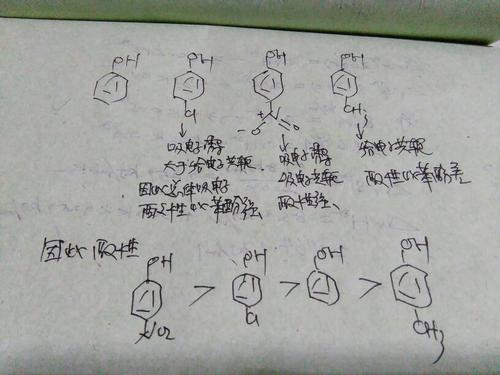 OH OH OH OH
Cl N CH3
+
-O O
吸电子诱导
大于给电子共轭
因此总体吸电子
酸性比苯酚强
吸电子诱导
吸电子共轭
酸性强
给电子共轭
酸性比苯酚差
因此酸性
OH > OH > OH > OH
NO2 Cl CH3